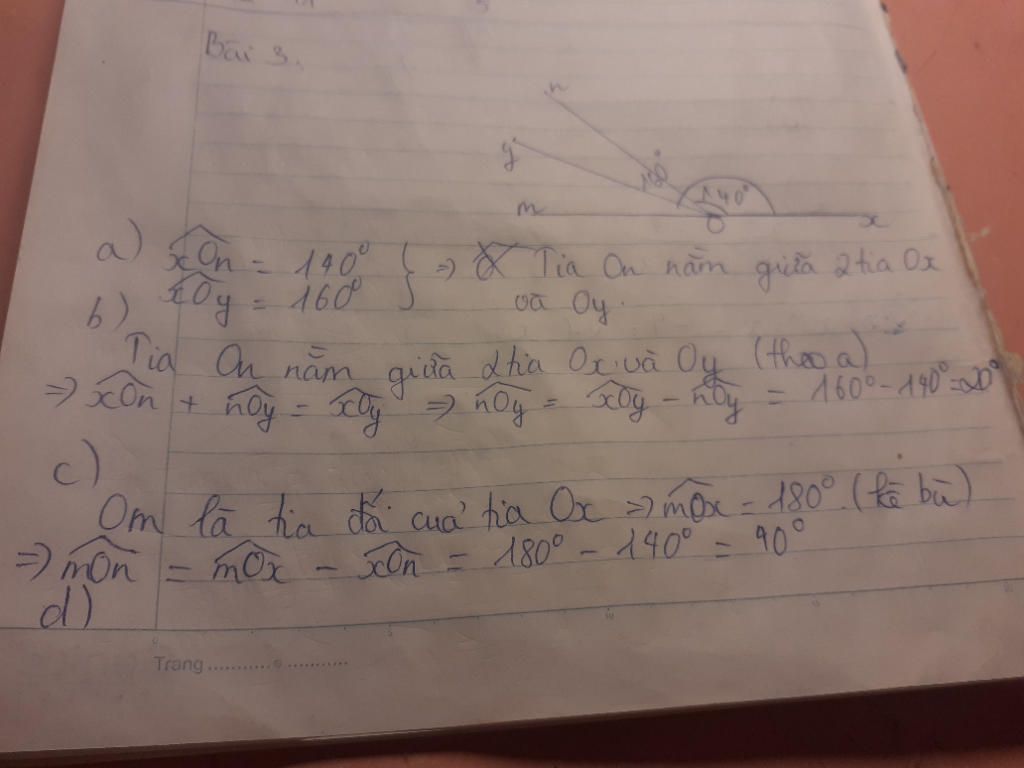 Bài 3.
n
y
160°
140°
m
O
x
a) xOn = 140° } => Tia On nằm giữa 2 tia Ox
xOy = 160° và Oy.
b)
Tia On nằm giữa 2 tia Ox và Oy (theo a)
=> xOn + nOy = xOy => nOy = xOy - nOy = 160° - 140° = 20°
c)
Om là tia đối cuả tia Ox => mOx = 180°. (kề bù)
=> mOn = mOx - xOn = 180° - 140° = 40°
d)
Trang